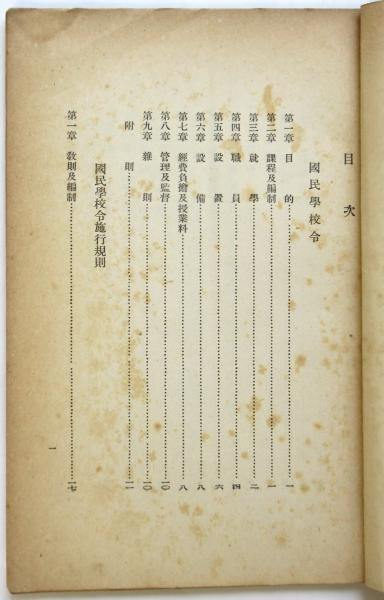 目次
國民學校令
第一章 目的……一
第二章 課程及編制……一
第三章 就學……二
第四章 職員……四
第五章 設置……六
第六章 設備……八
第七章 經費負擔及授業料……八
第八章 管理及監督……一〇
第九章 雜則……一〇
附則……一一
國民學校令施行規則
第一章 敎則及編制……一七
一